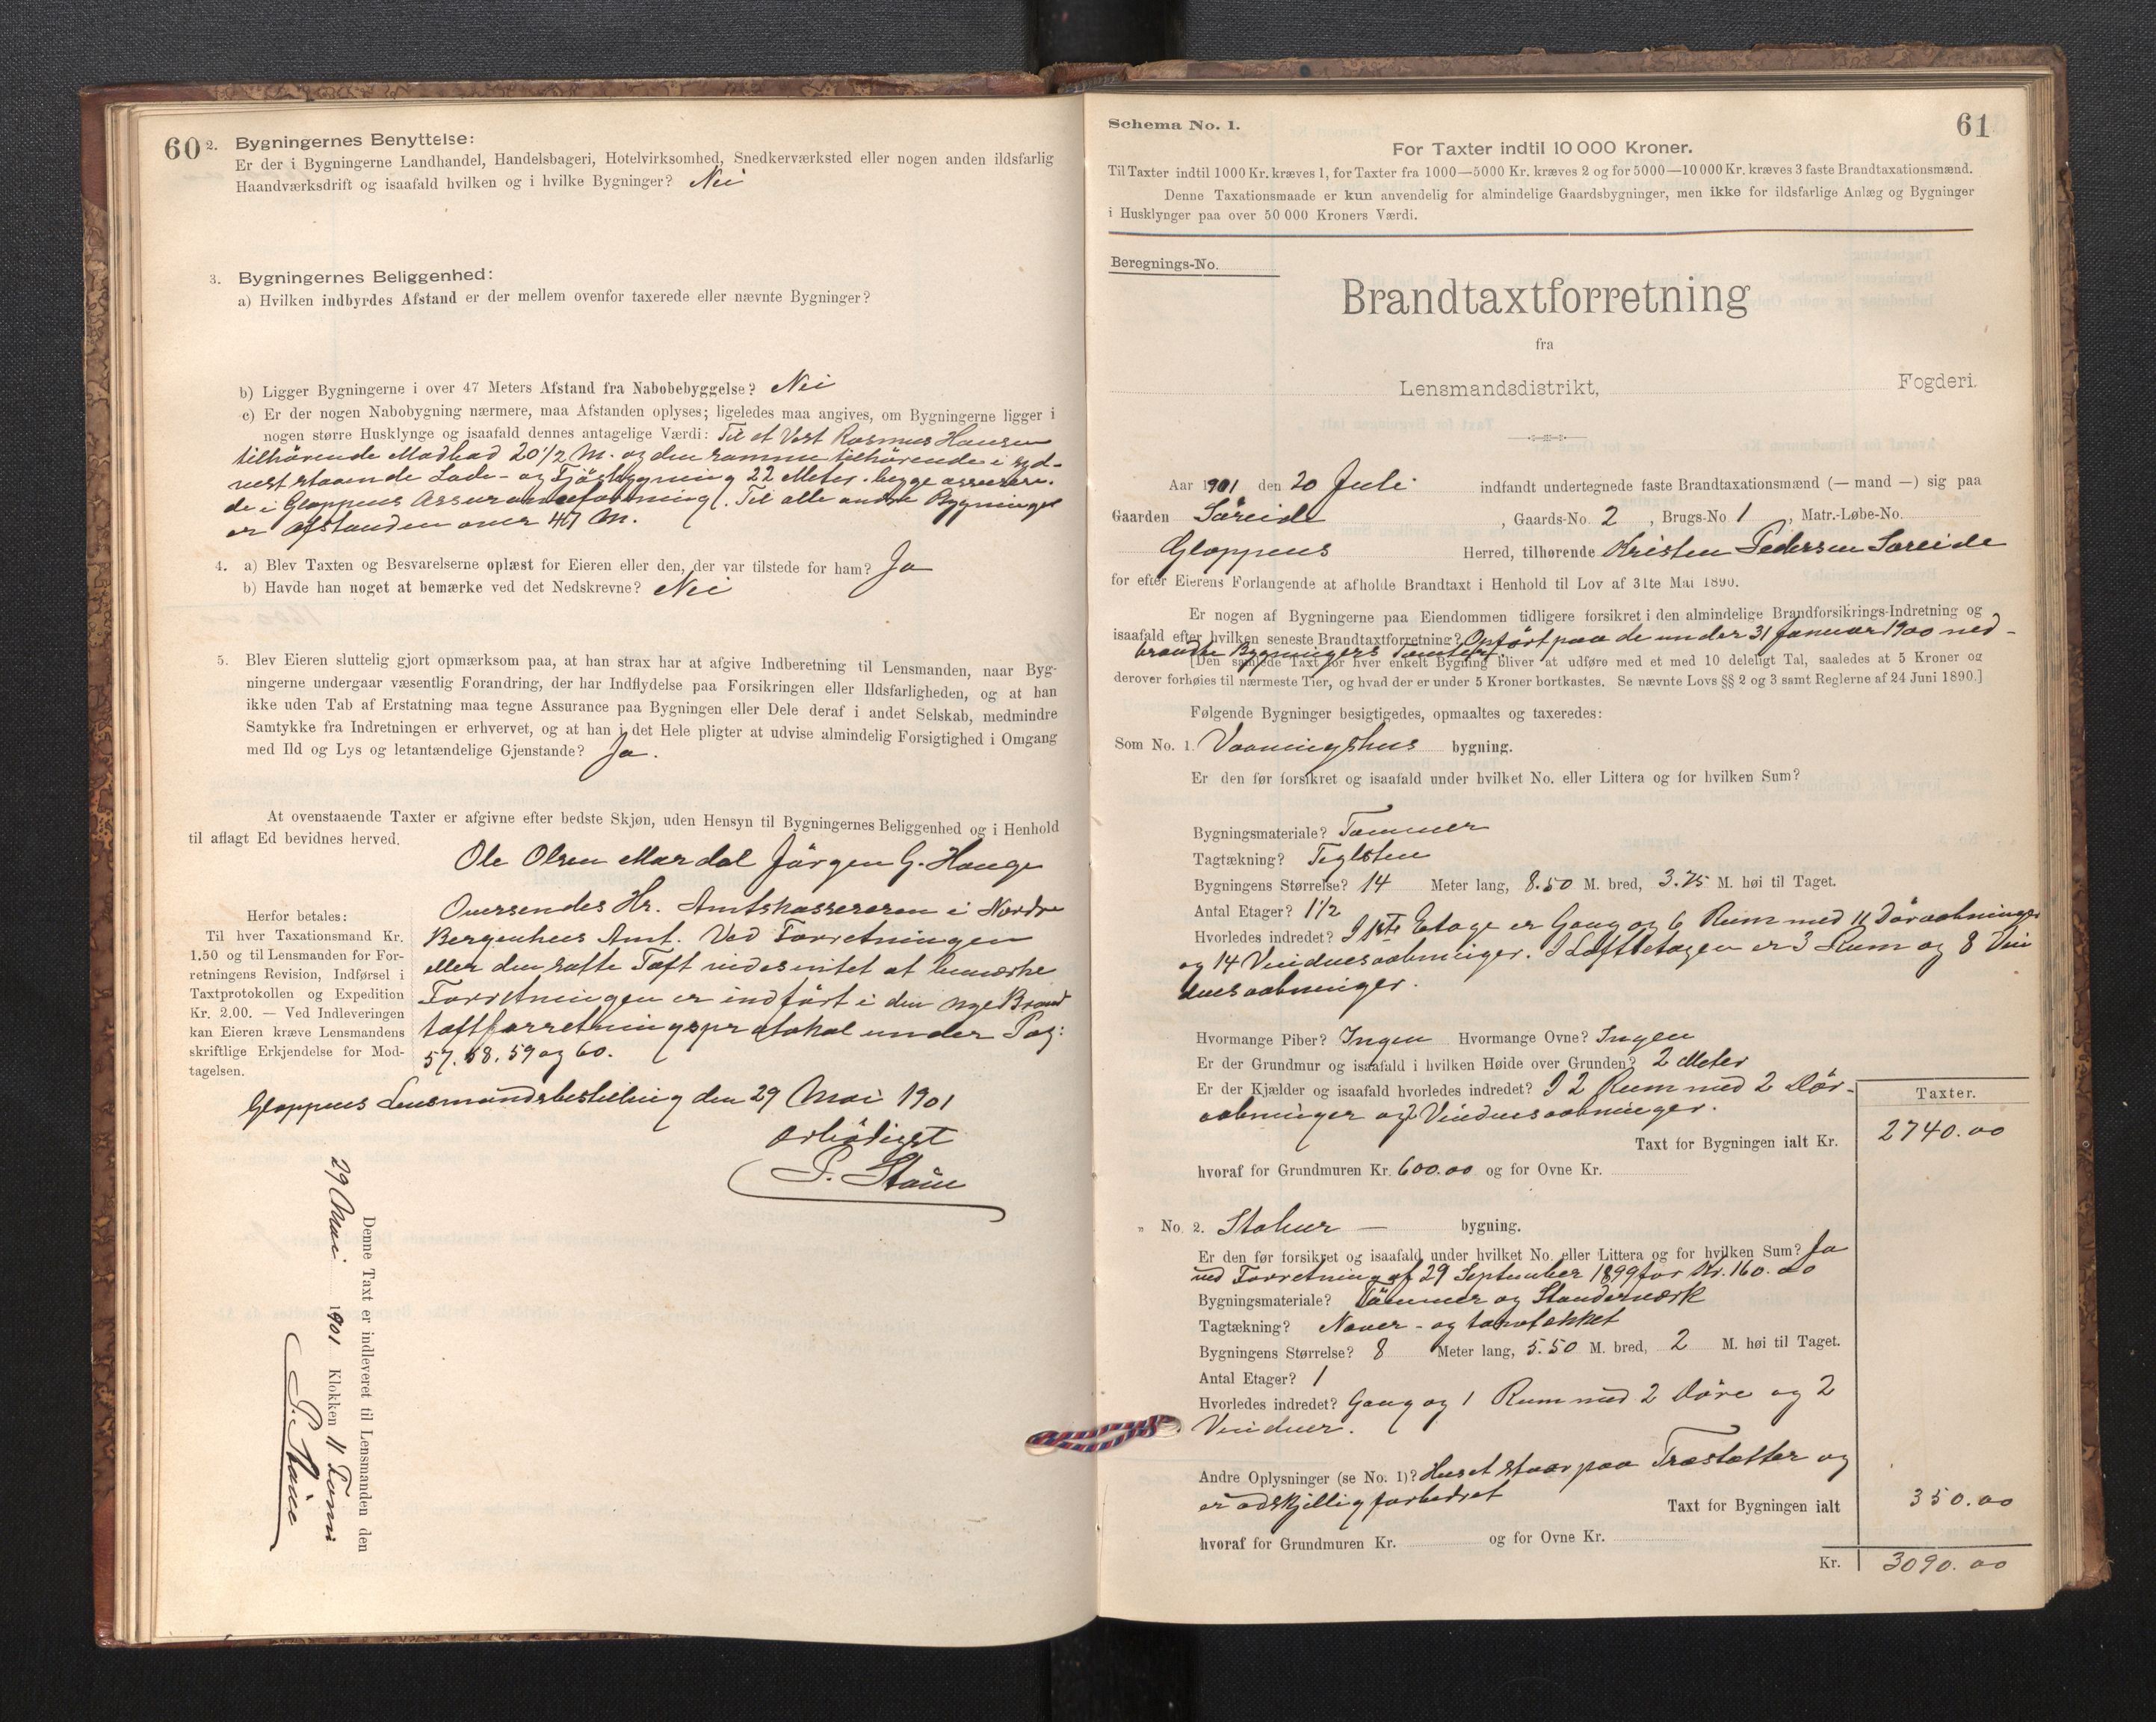 60
2. Bygningernes Benyttelse:
Er der i Bygningerne Landhandel, Handelsbageri, Hotelvirksomhed, Snedkerværksted eller nogen anden ildsfarlig
Haandværksdrift og isaafald hvilken og i hvilke Bygninger? Nei
3. Bygningernes Beliggenhed:
a) Hvilken indbyrdes Afstand er der mellem ovenfor taxerede eller nævnte Bygninger?
b) Ligger Bygningerne i over 47 Meters Afstand fra Nabobebyggelse? Nei
c) Er der nogen Nabobygning nærmere, maa Afstanden oplyses; ligeledes maa angives, om Bygningerne ligger i
nogen større Husklynge og isaafald dennes antagelige Værdi: Til et Vest Rasmus Hansen
tilhörende Madbad 20 1/2 M. og den samme tilhörende i syd-
vest staaende Lade- og Fjösbygning 22 Meter. begge assurere-
de i Gloppens Assuranceforening. Til alle andre Bygninger
er Afstanden over 47 M.
4. a) Blev Taxten og Besvarelserne oplæst for Eieren eller den, der var tilstede for ham? Ja
b) Havde han noget at bemærke ved det Nedskrevne? Nei
5. Blev Eieren sluttelig gjort opmærksom paa, at han strax har at afgive Indberetning til Lensmanden, naar Byg-
ningerne undergaar væsentlig Forandring, der har Indflydelse paa Forsikringen eller Ildsfarligheden, og at han
ikke uden Tab af Erstatning maa tegne Assurance paa Bygningen eller Dele deraf i andet Selskab, medmindre
Samtykke fra Indretningen er erhvervet, og at han i det Hele pligter at udvise almindelig Forsigtighed i Omgang
med Ild og Lys og letantændelige Gjenstande? Ja.
At ovenstaaende Taxter er afgivne efter bedste Skjøn, uden Hensyn til Bygningernes Beliggenhed og i Henhold
til aflagt Ed bevidnes herved.
Ole Olsen Mardal Jörgen G. Hauge
Herfor betales:
Til hver Taxationsmand Kr.
1.50 og til Lensmanden for For-
retningens Revision, Indførsel i
Taxtprotokollen og Expedition
Kr. 2.00. — Ved Indleveringen
kan Eieren kræve Lensmandens
skriftlige Erkjendelse for Mod-
tagelsen.
Oversendes Hr. Amtskassereren i Nordre
Bergenhus Amt. Ved Forretningen
eller den satte Taxt vides intet at bemærke
Forretningen er indfört i den nye Brand
taxtforretningsprotokol under Pag:
57. 58. 59 og 60.
Gloppens Lensmandsbestilling den 29 Mai 1901
Ærbödigst
P. Staie
Denne Taxt er indleveret til Lensmanden den
29 Mai 1901 Klokken 11 Form
P. Staie
61
Schema No. 1.
For Taxter indtil 10 000 Kroner.
Til Taxter indtil 1000 Kr. kræves 1, for Taxter fra 1000—5000 Kr. kræves 2 og for 5000—10 000 Kr. kræves 3 faste Brandtaxationsmænd.
Denne Taxationsmaade er kun anvendelig for almindelige Gaardsbygninger, men ikke for ildsfarlige Anlæg og Bygninger
i Husklynger paa over 50 000 Kroners Værdi.
Beregnings-No.
Brandtaxtforretning
fra
Lensmandsdistrikt, Fogderi.
Aar 1901 den 20 Juli indfandt undertegnede faste Brandtaxationsmænd (— mand —) sig paa
Gaarden Søreide, Gaards-No. 2, Brugs-No 1, Matr.-Løbe-No.
Gloppens Herred, tilhørende Kristen Pedersen Søreide
for efter Eierens Forlangende at afholde Brandtaxt i Henhold til Lov af 31te Mai 1890.
Er nogen af Bygningerne paa Eiendommen tidligere forsikret i den almindelige Brandforsikrings-Indretning og
isaafald efter hvilken seneste Brandtaxtforretning? Opfört paa de under 31 Januar 1900 ned-
brændte Bygningers Tomter
[Den samlede Taxt for hver enkelt Bygning bliver at udføre med et med 10 deleligt Tal, saaledes at 5 Kroner og
derover forhøies til nærmeste Tier, og hvad der er under 5 Kroner bortkastes. Se nævnte Lovs §§ 2 og 3 samt Reglerne af 24 Juni 1890.]
Følgende Bygninger besigtigedes, opmaaltes og taxeredes:
Som No. 1. Vaaningshus bygning.
Er den før forsikret og isaafald under hvilket No. eller Littera og for hvilken Sum?
Bygningsmateriale? Tømmer
Tagtækning? Teglsten
Bygningens Størrelse? 14 Meter lang, 8.50 M. bred, 3.75 M. høi til Taget.
Antal Etager? 1 1/2
Hvorledes indredet? I 1ste Etage er Gang og 6 Rum med 11 Döraabninger
og 14 Vinduesaabninger. I Loftsetagen er 3 Rum og 8 Vin
duesaabninger.
Hvormange Piber? Ingen Hvormange Ovne? Ingen
Er der Grundmur og isaafald i hvilken Høide over Grunden? 2 Meter
Er der Kjælder og isaafald hvorledes indredet? I 2 Rum med 2 Dör-
aabninger og 2 Vinduesaabninger.
Taxter.
Taxt for Bygningen ialt Kr. 2740.00
hvoraf for Grundmuren Kr. 600.00 og for Ovne Kr.
" No. 2. Stabur — bygning.
Er den før forsikret og isaafald under hvilket No. eller Littera og for hvilken Sum? Ja
ved Forretning af 29 September 1899 for Kr. 160.00
Bygningsmateriale? Tömmer og Standerværk
Tagtækning? Næver- og torvtækket
Bygningens Størrelse? 8 Meter lang, 5.50 M. bred, 2 M. høi til Taget.
Antal Etager? 1
Hvorledes indredet? Gang og 1 Rum med 2 Döre og 2
Vinduer.
Andre Oplysninger (se No. 1)? Huset staar paa Træstøtter og
er adskjellig forbedret
Taxt for Bygningen ialt 350.00
hvoraf for Grundmuren Kr. og for Ovne Kr.
Kr. 3090.00